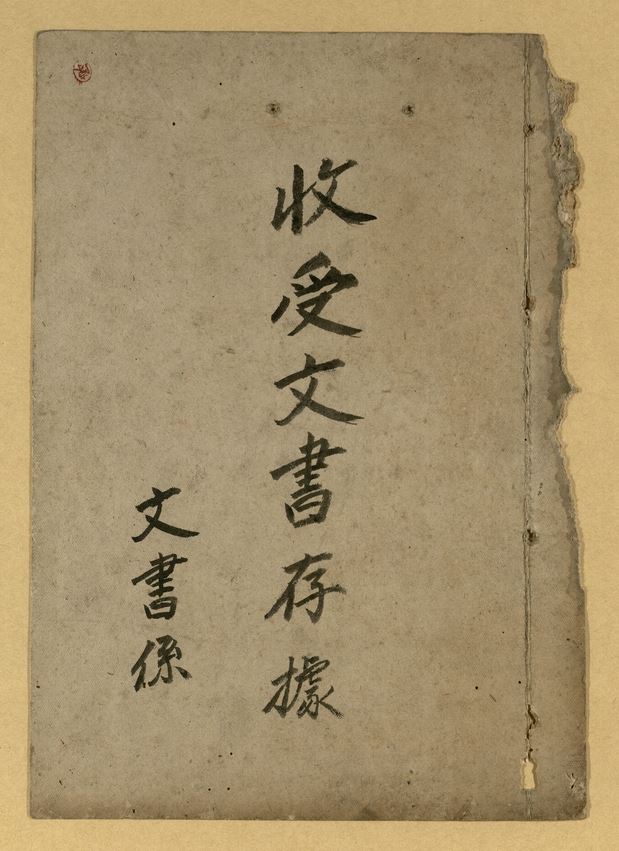 收受文書存據
文書係